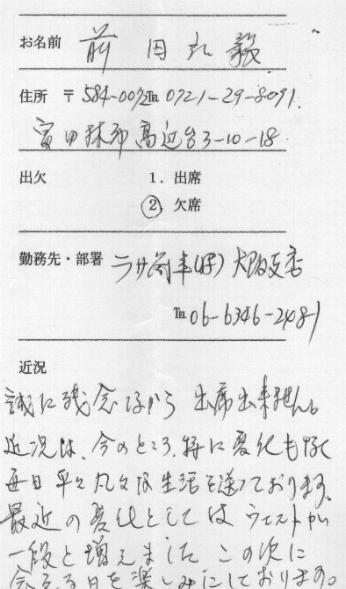 お名前 前田弘義
住所 〒584-0092 ℡ 0721-29-8091
富田林市高辺台3-10-18
出欠 1. 出席
2. 欠席
勤務先・部署 ラサ商事(株)大阪支店
℡ 06-6346-2481
近況
誠に残念ながら 出席出来ません。
近況は、今のところ、特に変化もなく
毎日 平々凡々な生活を送っております。
最近の変化としては ウェストが
一段と増えました この次に
会える日を楽しみにしております。